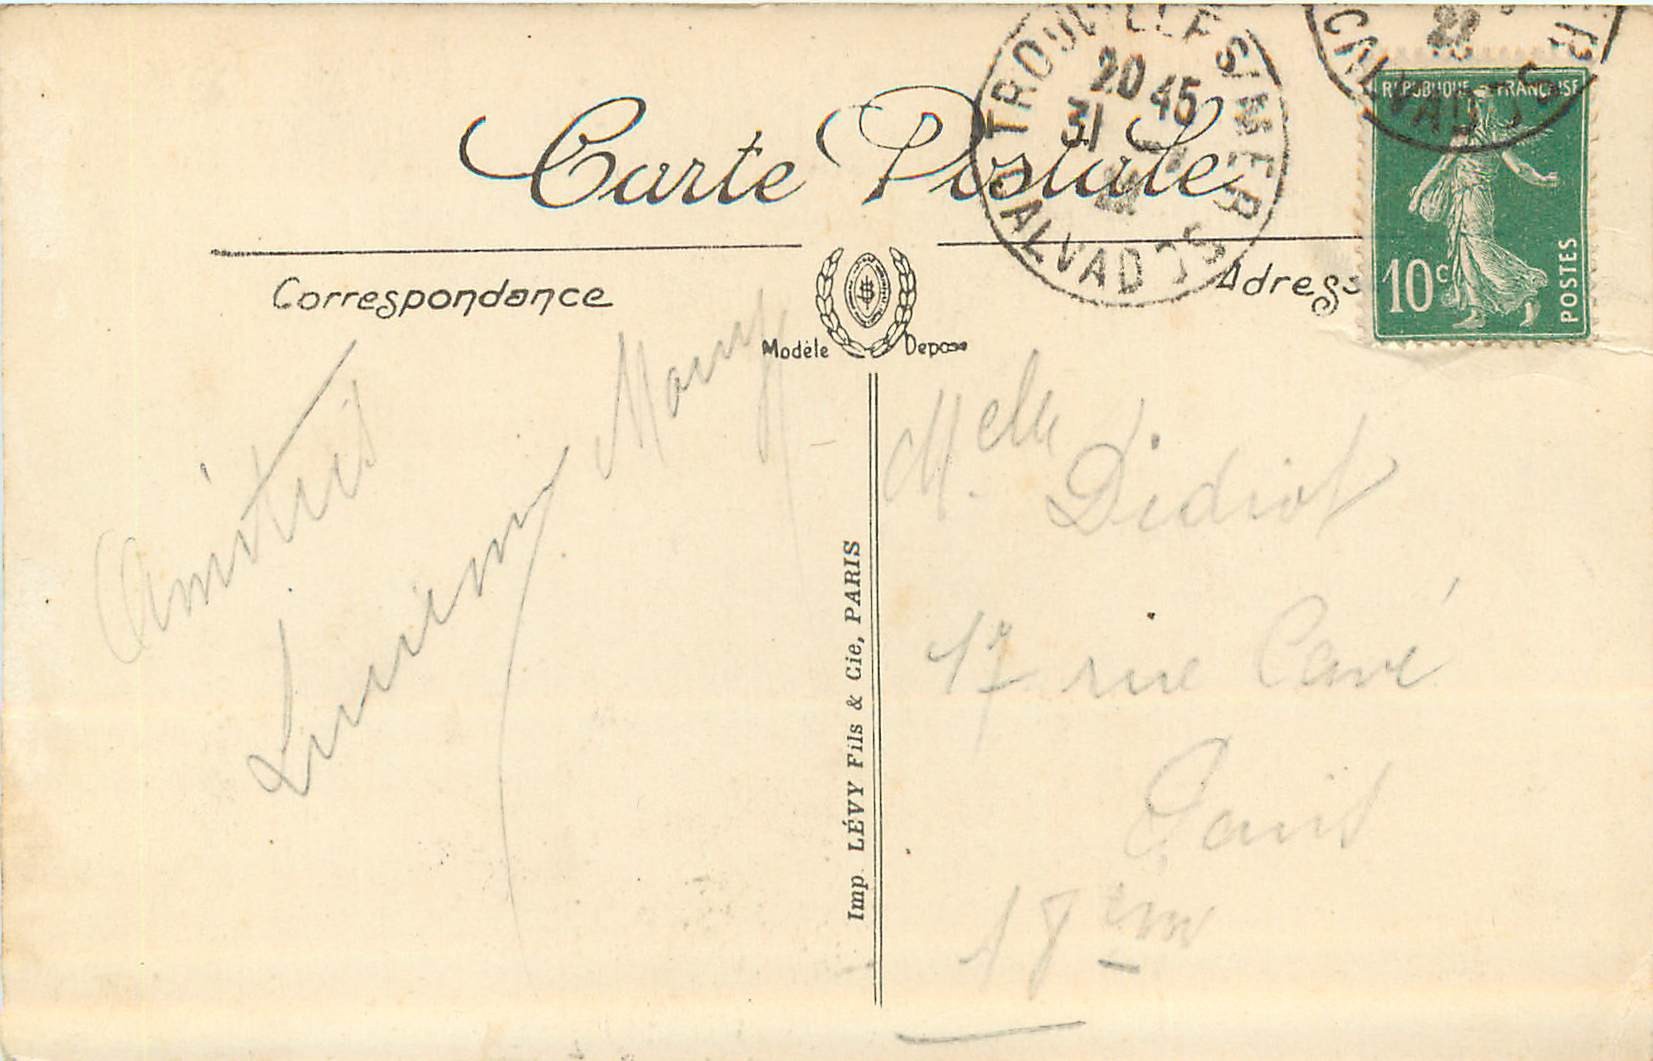 Carte Postale
TROUVILLE S/MER
20 45
31
22
CALVADOS
CALVADOS
22
REPUBLIQUE FRANÇAISE
10c
POSTES
Correspondance
Modèle Deposé
Adresse
Amitiés
Lucienne
Melle Didiot
17 rue Cavé
Paris
18eme
Imp. LÉVY Fils & Cie, PARIS